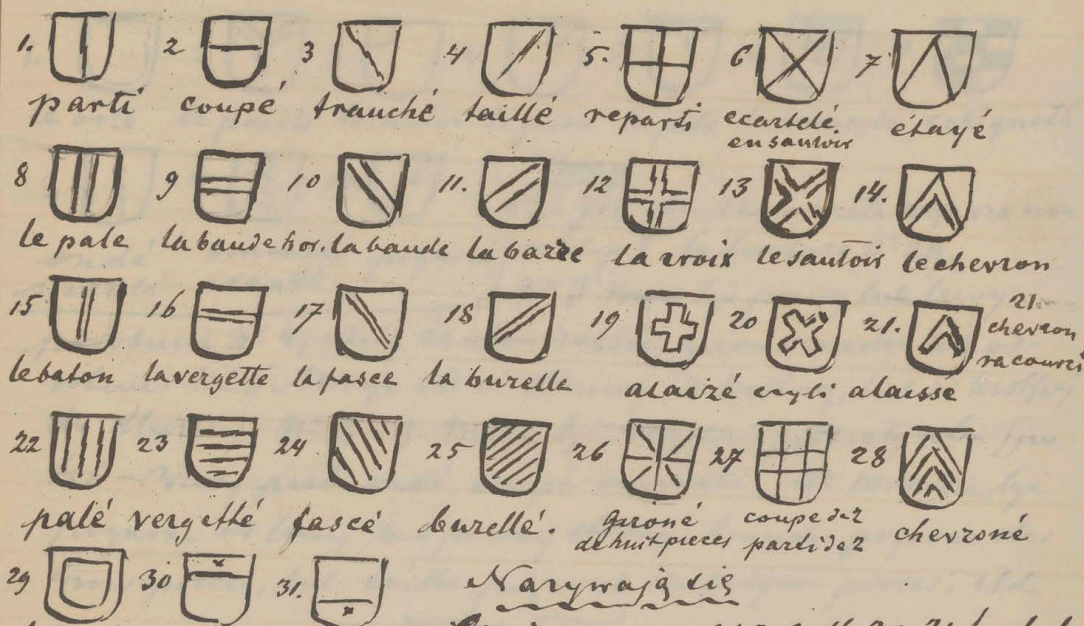 1. 2 3 4 5. 6 7
parti coupé tranché taillé reparti ecartelé. étayé
en sautoir
8 9 10 11. 12 13 14.
le pale la bande hor. la bande la barée la croix le sautoir le chevron
15 16 17 18 19 20 21. 21.
chevron
racourci
le baton la vergette la fasce la burelle alaizé alaissé
22 23 24 25 26 27 28
palé vergetté fascé burellé. gironé coupé de 2 chevroné
de huit pieces parti de 2
29 30 31.
Nazywają się